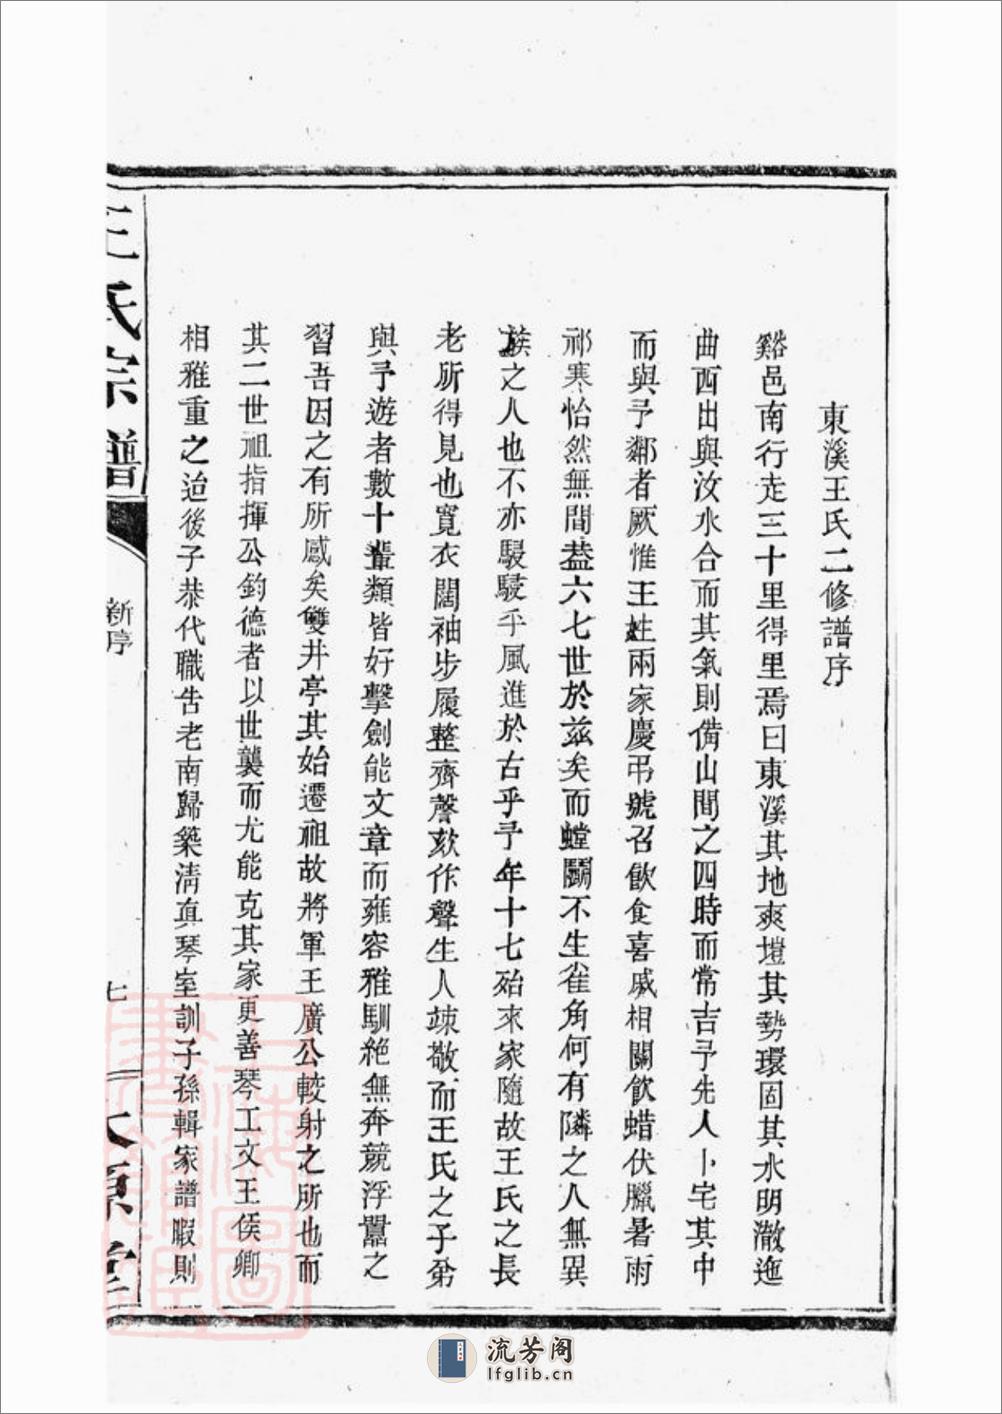 東溪王氏二修譜序
谿邑南行走三十里得里焉曰東溪其地爽塏其勢環固其水明澈迤
曲西出與汝水合而其氣則備山間之四時而常吉予先人卜宅其中
而與予鄰者厥惟王姓兩家慶弔號召飲食喜戚相關飲蜡伏臘暑雨
祁寒怡然無間葢六七世於兹矣而螳鬬不生雀角何有隣之人無異
族之人也不亦駸駸乎風進於古乎予年十七始來家隨故王氏之長
老所得見也寬衣闊袖步履整齊謦欬作聲生人竦敬而王氏之子弟
與予遊者數十輩類皆好擊劍能文章而雍容雅馴絶無奔競浮囂之
習吾因之有所感矣雙井亭其始遷祖故將軍王廣公較射之所也而
其二世祖指揮公鈞德者以世襲而尤能克其家更善琴工文王侯卿
相雅重之迨後子恭代職告老南歸築清真琴室訓子孫輯家譜暇則
王氏宗譜
新序
七
太原堂
流芳阁
lfglib.cn